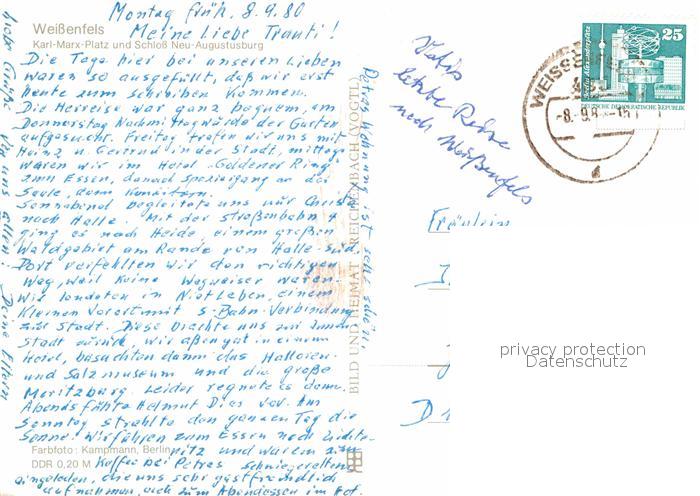 Montag früh, 8.9.80
Weißenfels
Karl-Marx-Platz und Schloß Neu-Augustusburg
Meine Liebe Trauti!
Die Tage hier bei unseren Lieben
waren so ausgefüllt, daß wir erst
heute zum schreiben kommen.
Die Herreise war ganz bequem, am
Donnerstag Nachmittag würde der Garten
aufgesucht. Freitag trafen wir uns mit
Heinz u. Gertrud in der Stadt, mittags
waren wir im Hotel "Goldener Ring"
zum Essen, danach Spaziergang an der
Saale, dann Konditorei.
Sonnabend begleitete uns nur Christa
nach Halle. Mit der Straßenbahn
ging es nach Heide einem großen
Waldgebiet am Rande von Halle-Süd.
Dort verfehlten wir den richtigen
Weg, weil keine Wegweiser waren.
Wir landeten in Nietleben, einem
kleinen Vorort mit S-Bahn-Verbindung
zur Stadt. Diese brachte uns zur
Stadt zurück, wir aßen gut in einem
Hotel, besuchten dann das Halloren-
und Salzmuseum und die große
Moritzburg. Leider regnete es dann.
Abends führte Helmut Dias vor. Am
Sonntag strahlte den ganzen Tag die
Sonne. Wir fuhren zum Essen nach
und waren zum
Farbfoto: Kampmann, Berlin
DDR 0,20 M
Kaffee bei Petras Schwiegereltern
eingeladen, die uns sehr gastfreundlich
aufnahmen, auch zum Abendessen im
Petras Wohnung ist sehr schön!
Liebe Grüße von uns allen! Deine Eltern
BILD UND HEIMAT REICHENBACH (VOGTL)
Vatis
letzte Reise
nach Weißenfels
Fräulein
25
DEUTSCHE DEMOKRATISCHE REPUBLIK
WEISSENFELS
-8.-9.8
d
privacy protection
Datenschutz